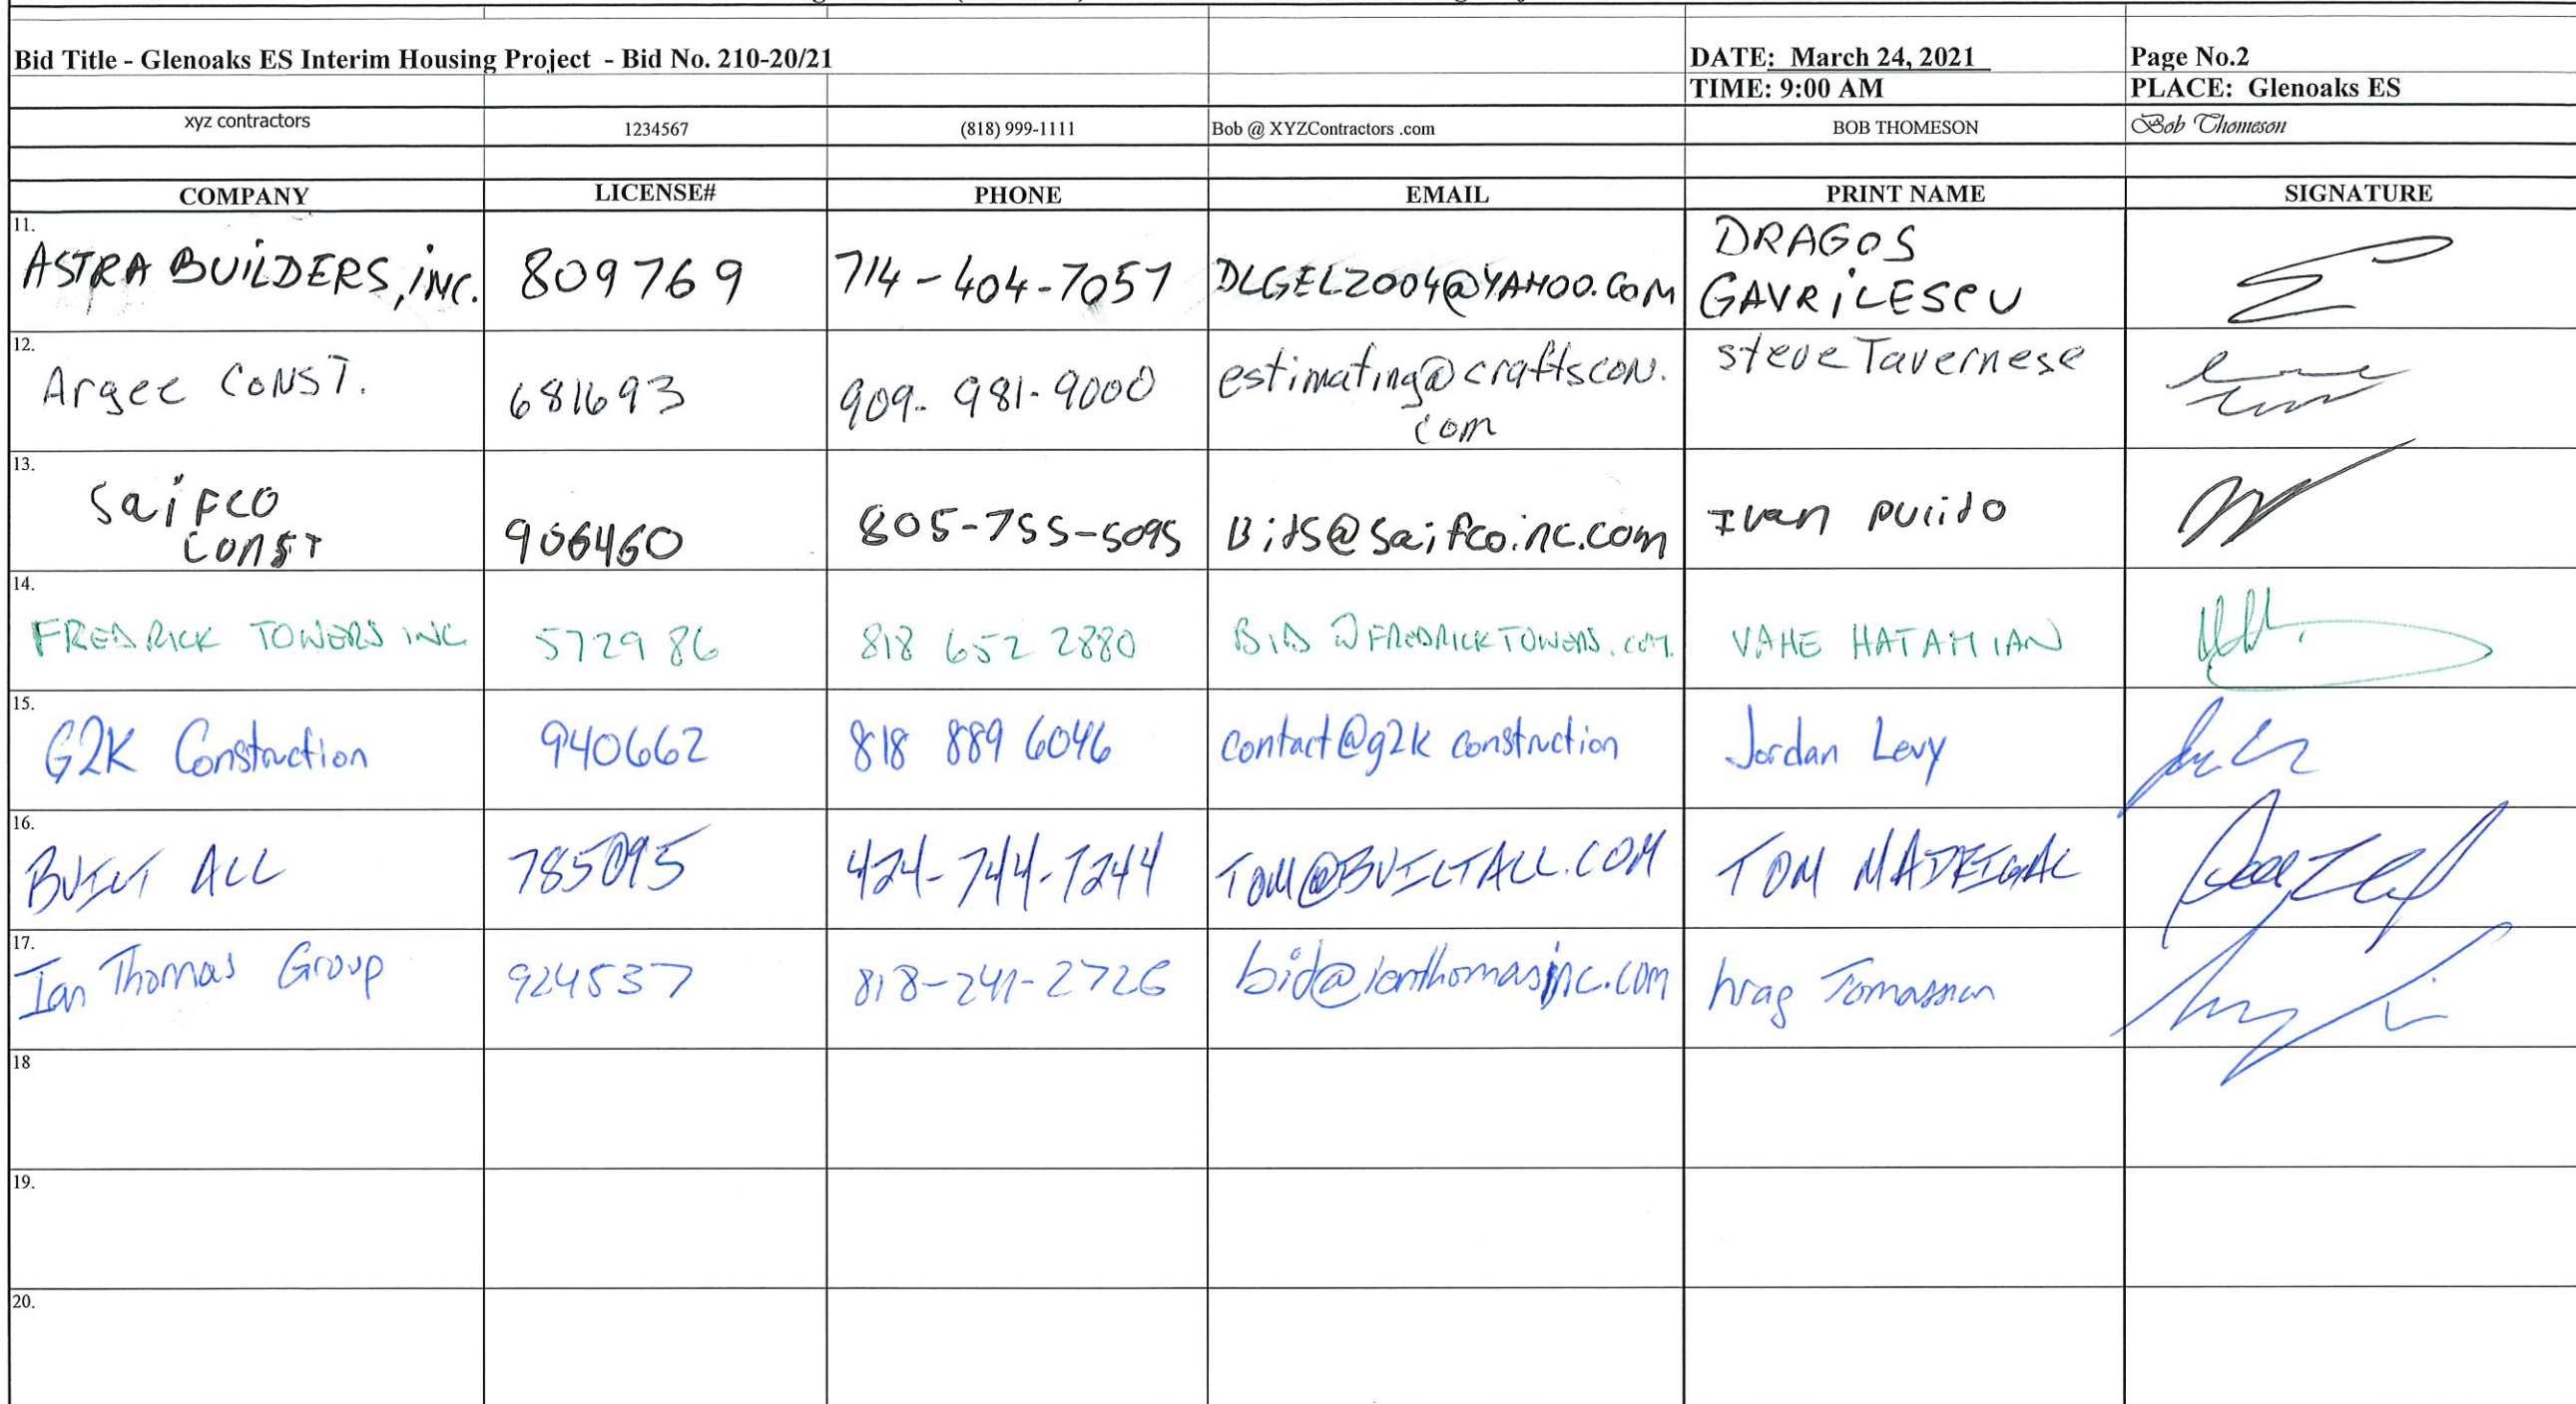 Bid Title - Glenoaks ES Interim Housing Project - Bid No. 210-20/21 DATE: March 24, 2021 Page No.2
TIME: 9:00 AM PLACE: Glenoaks ES
xyz contractors 1234567 (818) 999-1111 Bob @ XYZContractors .com BOB THOMESON Bob Thomeson
COMPANY LICENSE# PHONE EMAIL PRINT NAME SIGNATURE
11. ASTRA BUILDERS, INC. 809769 714-404-7057 DLGEL2004@YAHOO.COM DRAGOS
GAVRILESCU
12. Argee CONST. 681693 909-981-9000 estimating@craftscon. steve Tavernese
com
13. Saifco
CONST 906460 805-755-5095 Bids@saifcoinc.com Ivan Pulido
14. FREDRICK TOWERS INC 572986 818 652 2880 BID @FREDRICKTOWERS.COM VAHE HATAMIAN
15. G2K Construction 940662 818 889 6046 contact@g2k construction Jordan Levy
16. BUILT ALL 785095 424-744-7244 TOM@BUILTALL.COM TOM MADRIGAL
17. Ian Thomas Group 924537 818-241-2726 bid@ianthomasinc.com hrag Tomassian
18
19.
20.